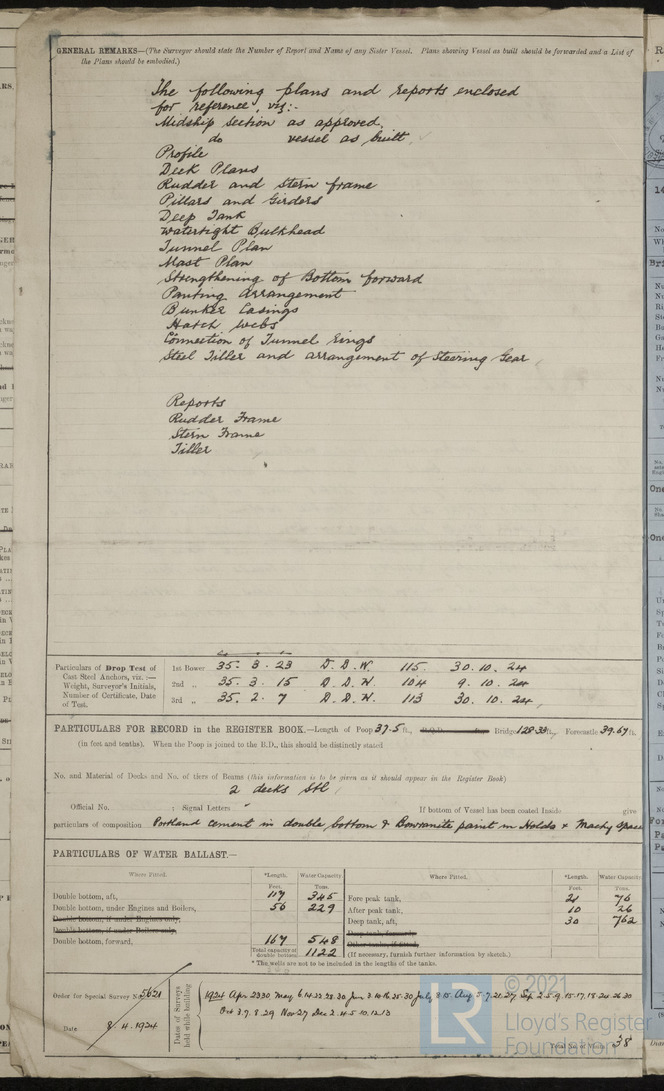 GENERAL REMARKS—(The Surveyor should state the Number of Report and Name of any Sister Vessel. Plans showing Vessel as built should be forwarded and a List of
the Plans should be embodied.)
The following plans and reports enclosed
for reference, viz:-
Midship section as approved.
do vessel as built
Profile
Deck Plans
Rudder and Stern frame
Pillars and Girders
Deep Tank
Watertight Bulkhead
Tunnel Plan
Mast Plan
Strengthening of Bottom forward
Panting Arrangement
Bunker Casings
Hatch Webs
Connection of Tunnel Rings
Steel Tiller and arrangement of Steering Gear
Reports
Rudder Frame
Stern Frame
Tiller
Particulars of Drop Test of
Cast Steel Anchors, viz. :—
Weight, Surveyor's Initials,
Number of Certificate, Date
of Test.
1st Bower 35. 3. 23 D. D. W. 115. 30. 10. 24
2nd „ 35. 3. 15 D. D. W. 104 9. 10. 24
3rd „ 35. 2. 7 D. D. W. 113 30. 10. 24
PARTICULARS FOR RECORD in the REGISTER BOOK.—Length of Poop 37.5 ft., Bridge 128.33 ft., Forecastle 39.67 ft.
(in feet and tenths). When the Poop is joined to the B.D., this should be distinctly stated
No. and Material of Decks and No. of tiers of Beams (this information is to be given as it should appear in the Register Book)
2 decks Stl
Official No. ; Signal Letters If bottom of Vessel has been coated Inside give
particulars of composition Portland cement in double bottom & Bowranite paint in Holds & Machy Spaces
PARTICULARS OF WATER BALLAST.—
Where Fitted. *Length. Water Capacity. Where Fitted. *Length. Water Capacity.
Feet. Tons. Feet. Tons.
Double bottom, aft, 117 345 Fore peak tank, 21 76
Double bottom, under Engines and Boilers, 56 229 After peak tank, 10 26
Double bottom, if under Engines only, Deep tank, aft, 30 762
Double bottom, if under Boilers only, Deep tank, forward,
Double bottom, forward, 167 548 Other tanks, if fitted,
Total capacity of double bottom 1122 (If necessary, furnish further information by sketch.)
* The wells are not to be included in the lengths of the tanks.
Order for Special Survey No. 5621
Date 8.4.1924
Dates of Surveys
held while building
1924 Apr 23 30 May 6 14 22 28 30 Jun 3 10 16 25 30 July 8 15 Aug 5 7 21 27 Sep 2 5 9 15 17 18 24 26 30
Oct 3 7 8 29 Nov 27 Dec 2 4 5 10 12 13
Total No. of Visits 38
© 2021
LR
Lloyd's Register
Foundation